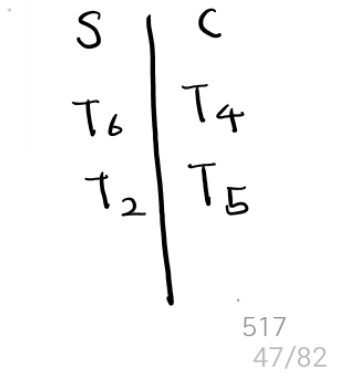 S | C
T6 | T4
T2 | T5
517
47/82